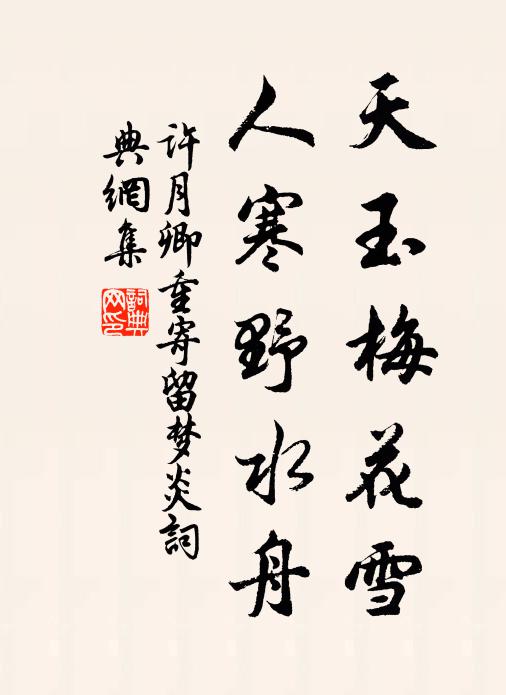 天玉梅花雪
人寒野水舟
许月卿重寄留梦炎詞
典網集
詞典網印